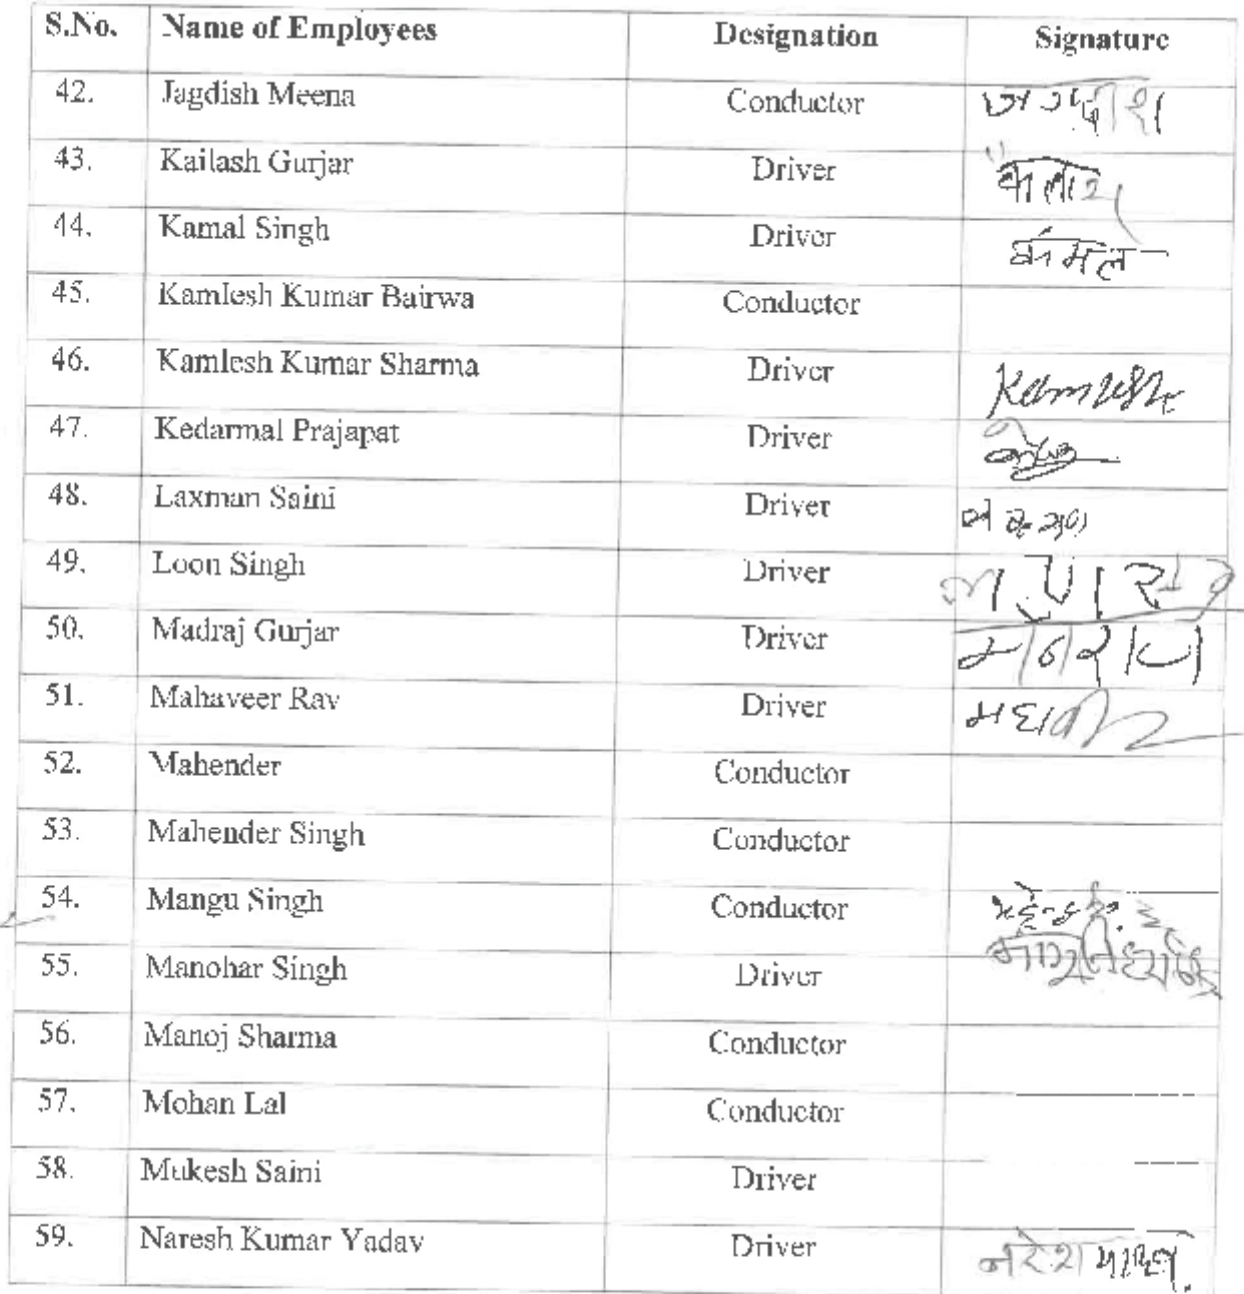 S.No. Name of Employees Designation Signature
42. Jagdish Meena Conductor जगदीश
43. Kailash Gurjar Driver
44. Kamal Singh Driver कमल
45. Kamlesh Kumar Bairwa Conductor
46. Kamlesh Kumar Sharma Driver Kamlesh
47. Kedarmal Prajapat Driver
48. Laxman Saini Driver
49. Loon Singh Driver
50. Madraj Gurjar Driver
51. Mahaveer Rav Driver महावीर
52. Mahender Conductor
53. Mahender Singh Conductor
54. Mangu Singh Conductor
55. Manohar Singh Driver
56. Manoj Sharma Conductor
57. Mohan Lal Conductor
58. Mukesh Saini Driver
59. Naresh Kumar Yadav Driver नरेश यादव